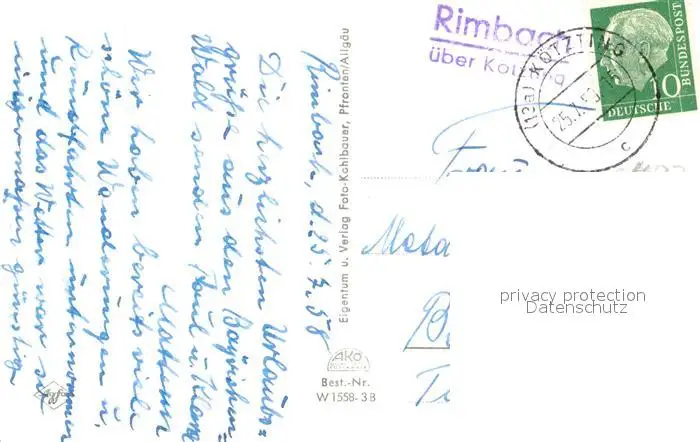 Rimbach, d. 25.7.58
Die herzlichsten Urlaubs=
grüße aus den Bayrischen=
Wald senden Paul u. Klara
Mattern
Wir haben bereits viele
schöne Wanderungen u.
Rundfahrten unternommen
und das Wetter war so
einigermaßen günstig
Agfa
Eigentum u. Verlag Foto-Kohlbauer, Pfronten/Allgäu
AKO
Best.-Nr.
W 1558-3B
Rimbach
über Kötzting
(13a) KÖTZTING
25.7.58
c
10
DEUTSCHE
BUNDESPOST
privacy protection
Datenschutz